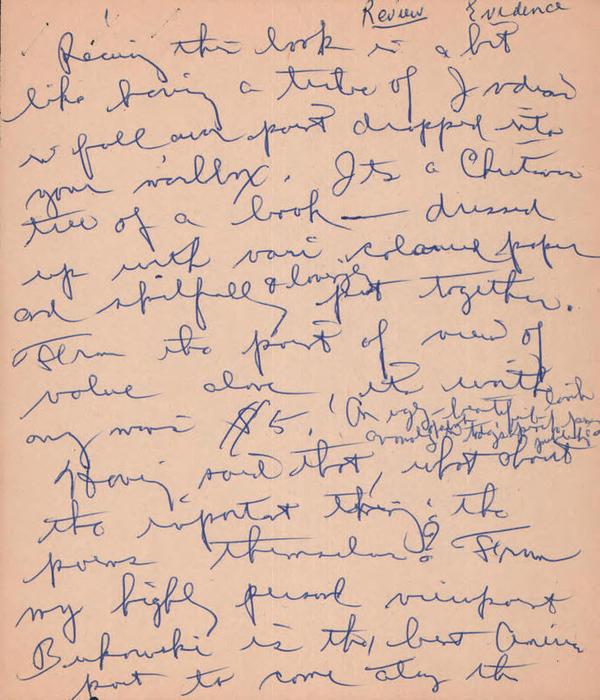 Review Evidence
this book is a bit
like having a tribe of Indians
in full war paint dropped into
your mailbox. Its a Christmas
tree of a book — dressed
up with vari colored paper
and skilfully & lovingly put together.
From the point of view of
value alone it's worth
any mans $5. An ugly-beautiful book
Having said that, what about
the important thing: the
poems themselves? From
my highly personal viewpoint
Bukowski is the best American
poet to come along